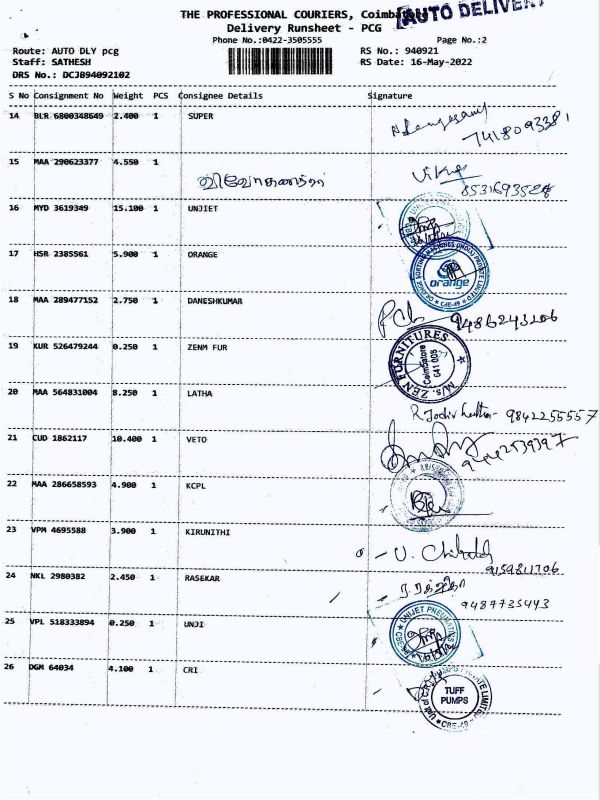 THE PROFESSIONAL COURIERS, Coimbatore
AUTO DELIVERY
Delivery Runsheet - PCG
Phone No.:0422-3505555 Page No.:2
Route: AUTO DLY pcg RS No.: 940921
Staff: SATHESH RS Date: 16-May-2022
DRS No.: DCJB94092102
S No Consignment No Weight PCS Consignee Details Signature
14 BLR 6800348649 2.400 1 SUPER
7418093381
15 MAA 290623377 4.550 1
8531693528
16 MYD 3619349 15.100 1 UNJIET
17 HSR 2385561 5.900 1 ORANGE
ORANGE SORTING MACHINES (INDIA) PRIVATE LIMITED
orange
CBE-49
18 MAA 289477152 2.750 1 DANESHKUMAR
9486243206
19 KUR 526479244 0.250 1 ZENM FUR
M/s. ZEN FURNITURES
Coimbatore
641 005
20 MAA 564831004 8.250 1 LATHA
9842255557
21 CUD 1862117 10.400 1 VETO
22 MAA 286658593 4.900 1 KCPL
23 VPM 4695588 3.900 1 KIRUNITHI
9159811706
24 NKL 2980382 2.450 1 RASEKAR
9487735443
25 VPL 518333894 0.250 1 UNJI
UNIJET PNEUMATICS
26 DGM 64034 4.100 1 CRI
TUFF
PUMPS
CBE-49